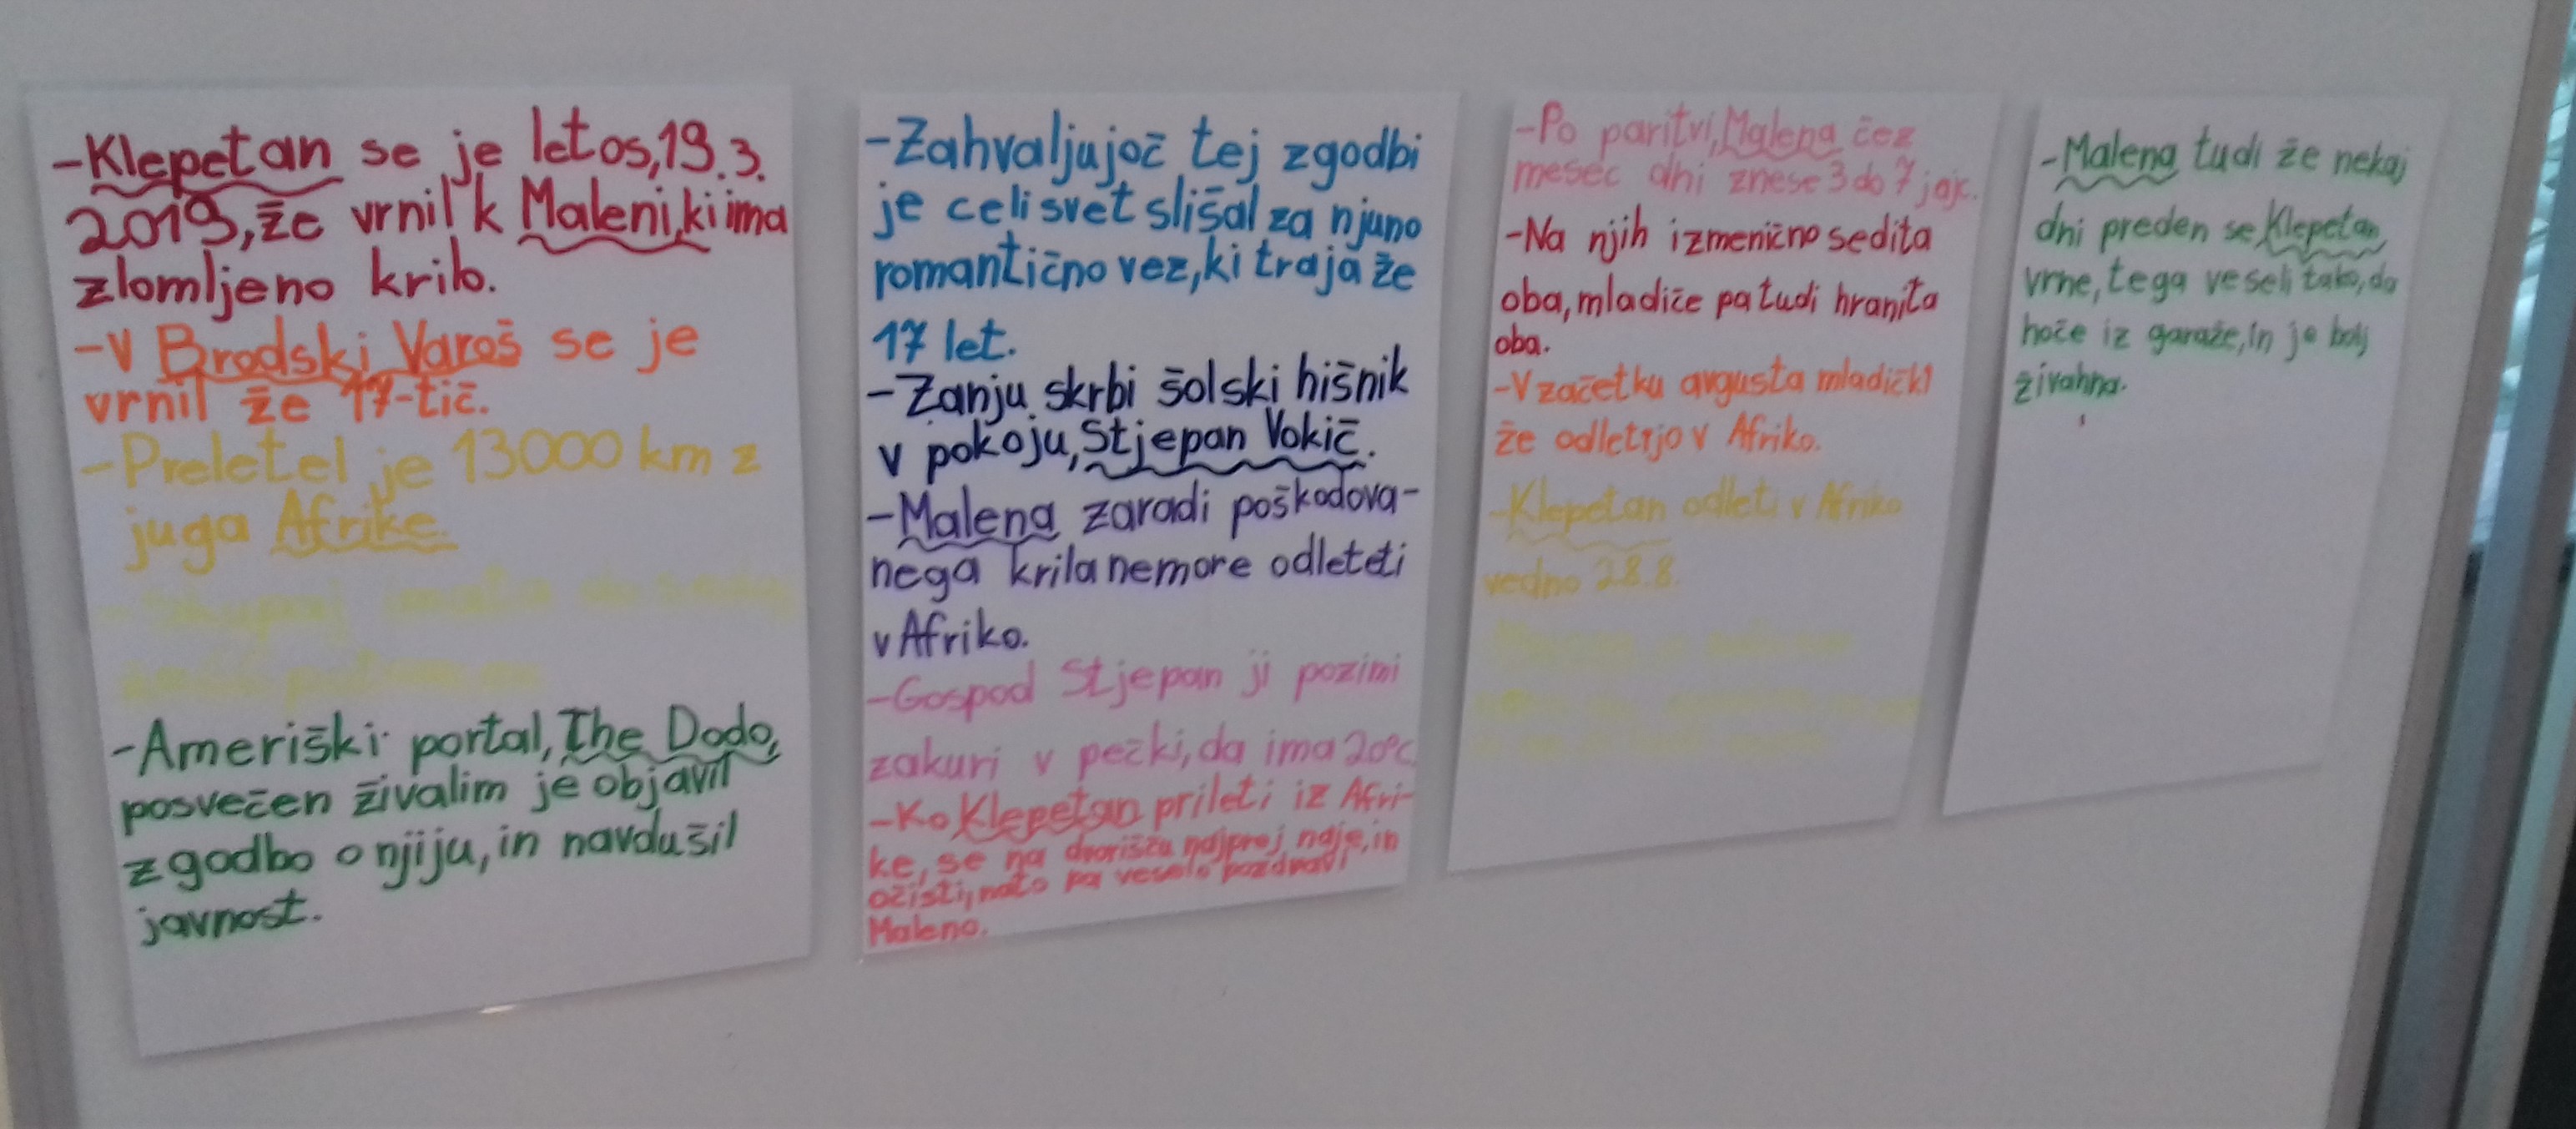 -Klepetan se je letos,19.3.
2019,že vrnil k Maleni,ki ima
zlomljeno krilo.
-V Brodski Varoš se je
vrnil že 17-tič.
-Preletel je 13000 km z
juga Afrike.
-Skupaj imata
-Ameriški portal, The Dodo,
posvečen živalim je objavil
zgodbo o njiju, in navdušil
javnost.
-Zahvaljujoč tej zgodbi
je celi svet slišal za njuno
romantično vez,ki traja že
17 let.
-Zanju skrbi šolski hišnik
v pokoju,Stjepan Vokič.
-Malena zaradi poškodova-
nega krila nemore odleteti
v Afriko.
-Gospod Stjepan ji pozimi
zakuri v pečki,da ima 20°C
-Ko Klepetan prileti iz Afri-
ke, se na dvorišču najprej naje,in
očisti,nato pa veselo pozdravi
Maleno.
-Po paritvi,Malena čez
mesec dni znese 3 do 7 jajc.
-Na njih izmenično sedita
oba,mladiče pa tudi hranita
oba.
-V začetku avgusta mladički
že odletijo v Afriko.
-Klepetan odleti v Afriko
vedno 28.8.
-Malena tudi že nekaj
dni preden se Klepetan
vrne,tega veseli tako,da
hoče iz garaže,in je bolj
živahna.